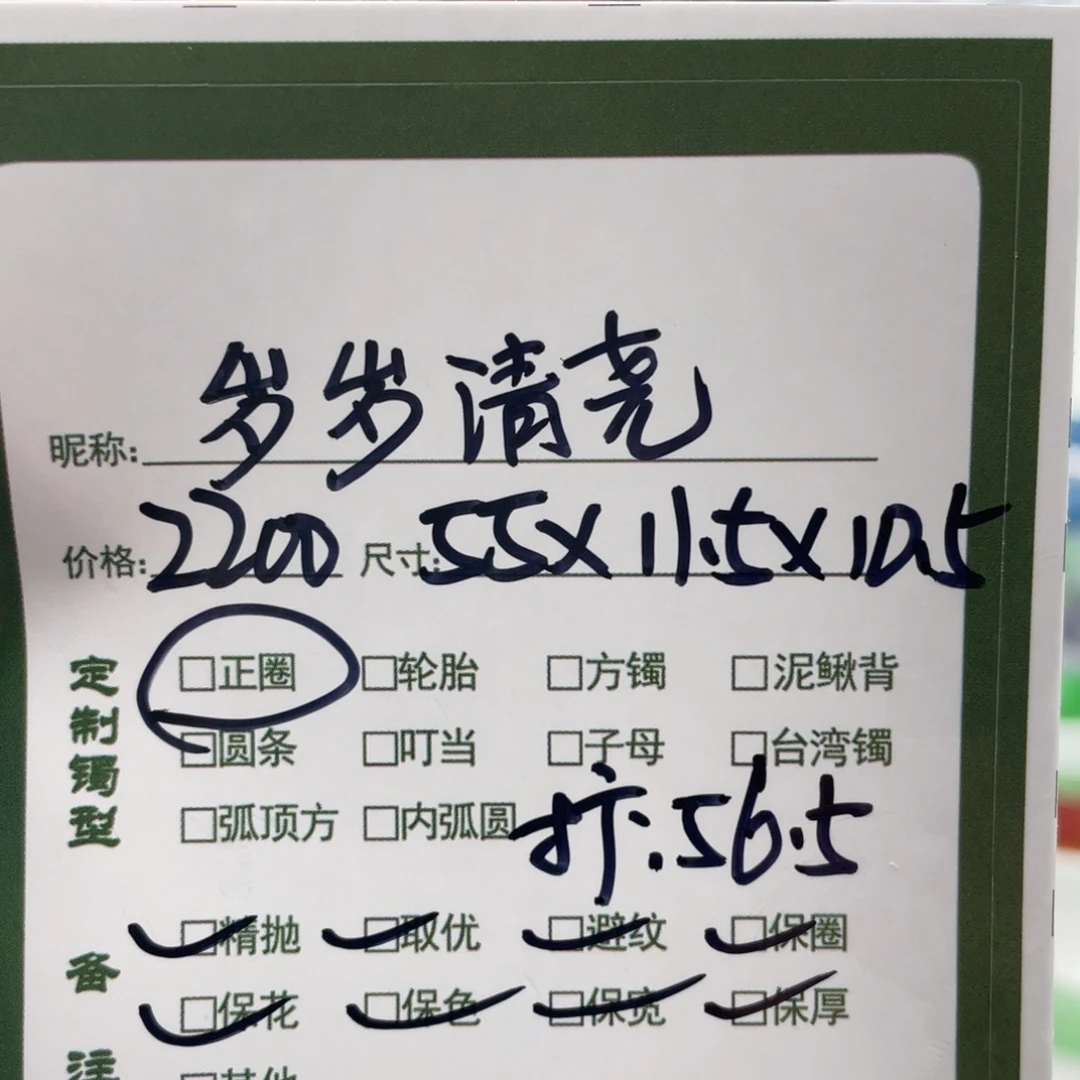 昵称:岁岁清尧
价格:2200 尺寸:55X11.5X10.5
定制镯型
□正圈 □轮胎 □方镯 □泥鳅背
□圆条 □叮当 □子母 □台湾镯
□弧顶方 □内弧圆 扩:56.5
备注
□精抛 □取优 □避纹 □保圈
□保花 □保色 □保宽 □保厚
□其他